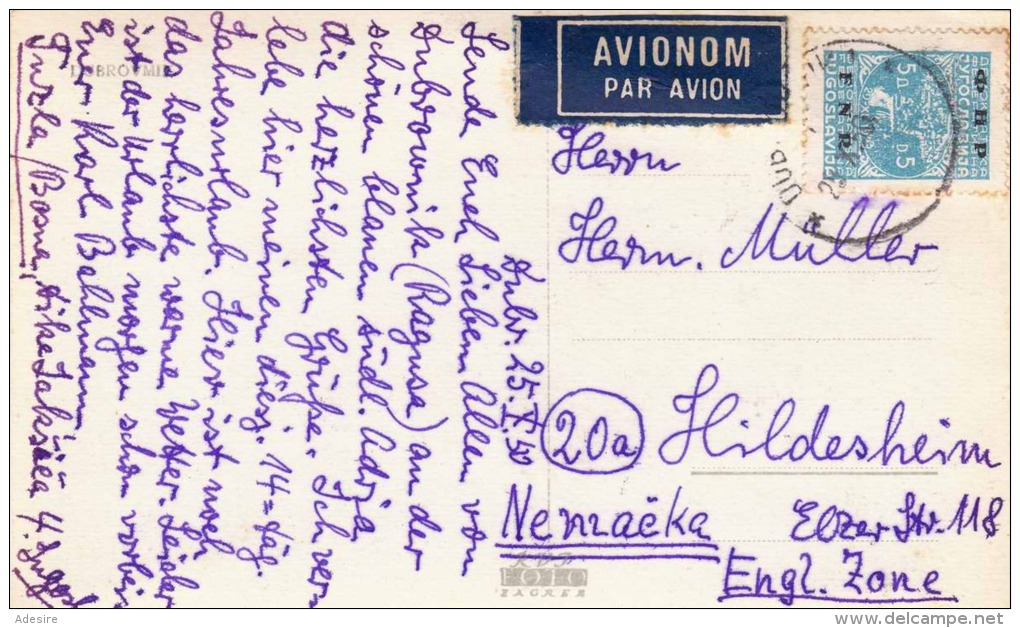 DUBROVNIK
Dubr. 25. X. 50
Sende Euch Lieben Allen von
Dubrownik (Ragusa) an der
schönen blauen südl. Adria
die herzlichsten Grüße. Ich ver-
lebe hier meinen diesj. 14=täg.
Jahresurlaub. Hier ist noch
das herrlichste warme Wetter. Leider
ist der Urlaub morgen schon vorbei
Eur Karl Bahlmann,
Tuzla/Bosne, 4. Jugosl
AVIONOM
PAR AVION
ФНР
ЈУГОСЛАВИЈА
FNR
JUGOSLAVIJA
5 D
5 D
DUB
Herrn
Herm. Müller
20a Hildesheim
Nemačka Elzer Str. 118
Engl. Zone
FOTO
ZAGREB
Adesire
delcampe.net